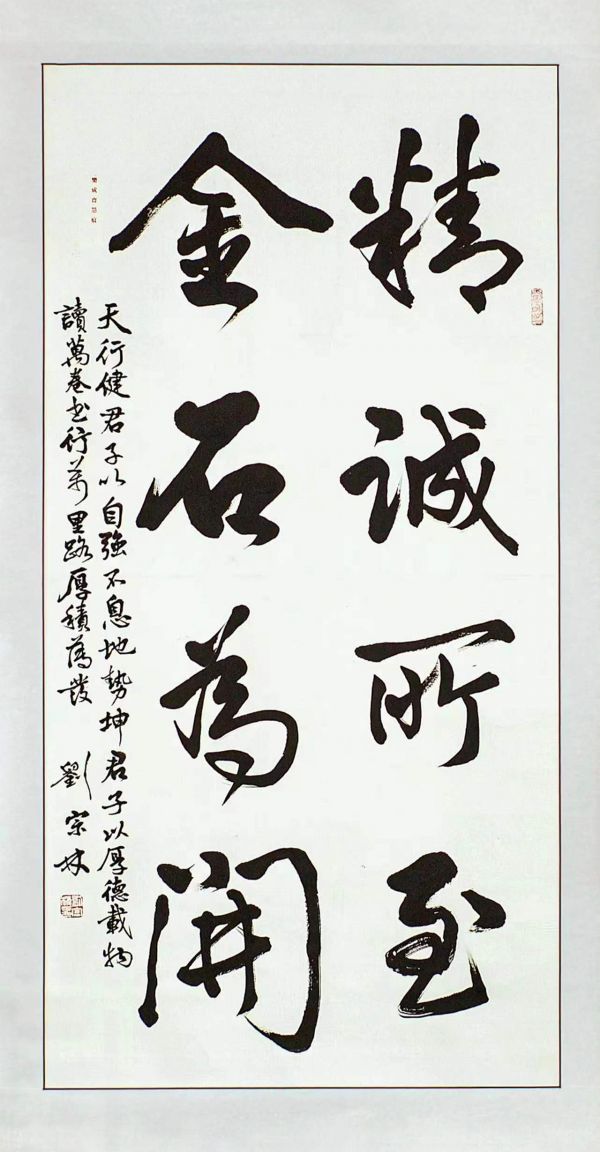 精誠所至
金石為開
天行健君子以自強不息地勢坤君子以厚德載物
讀萬卷书行萬里路厚積為發
劉宗林